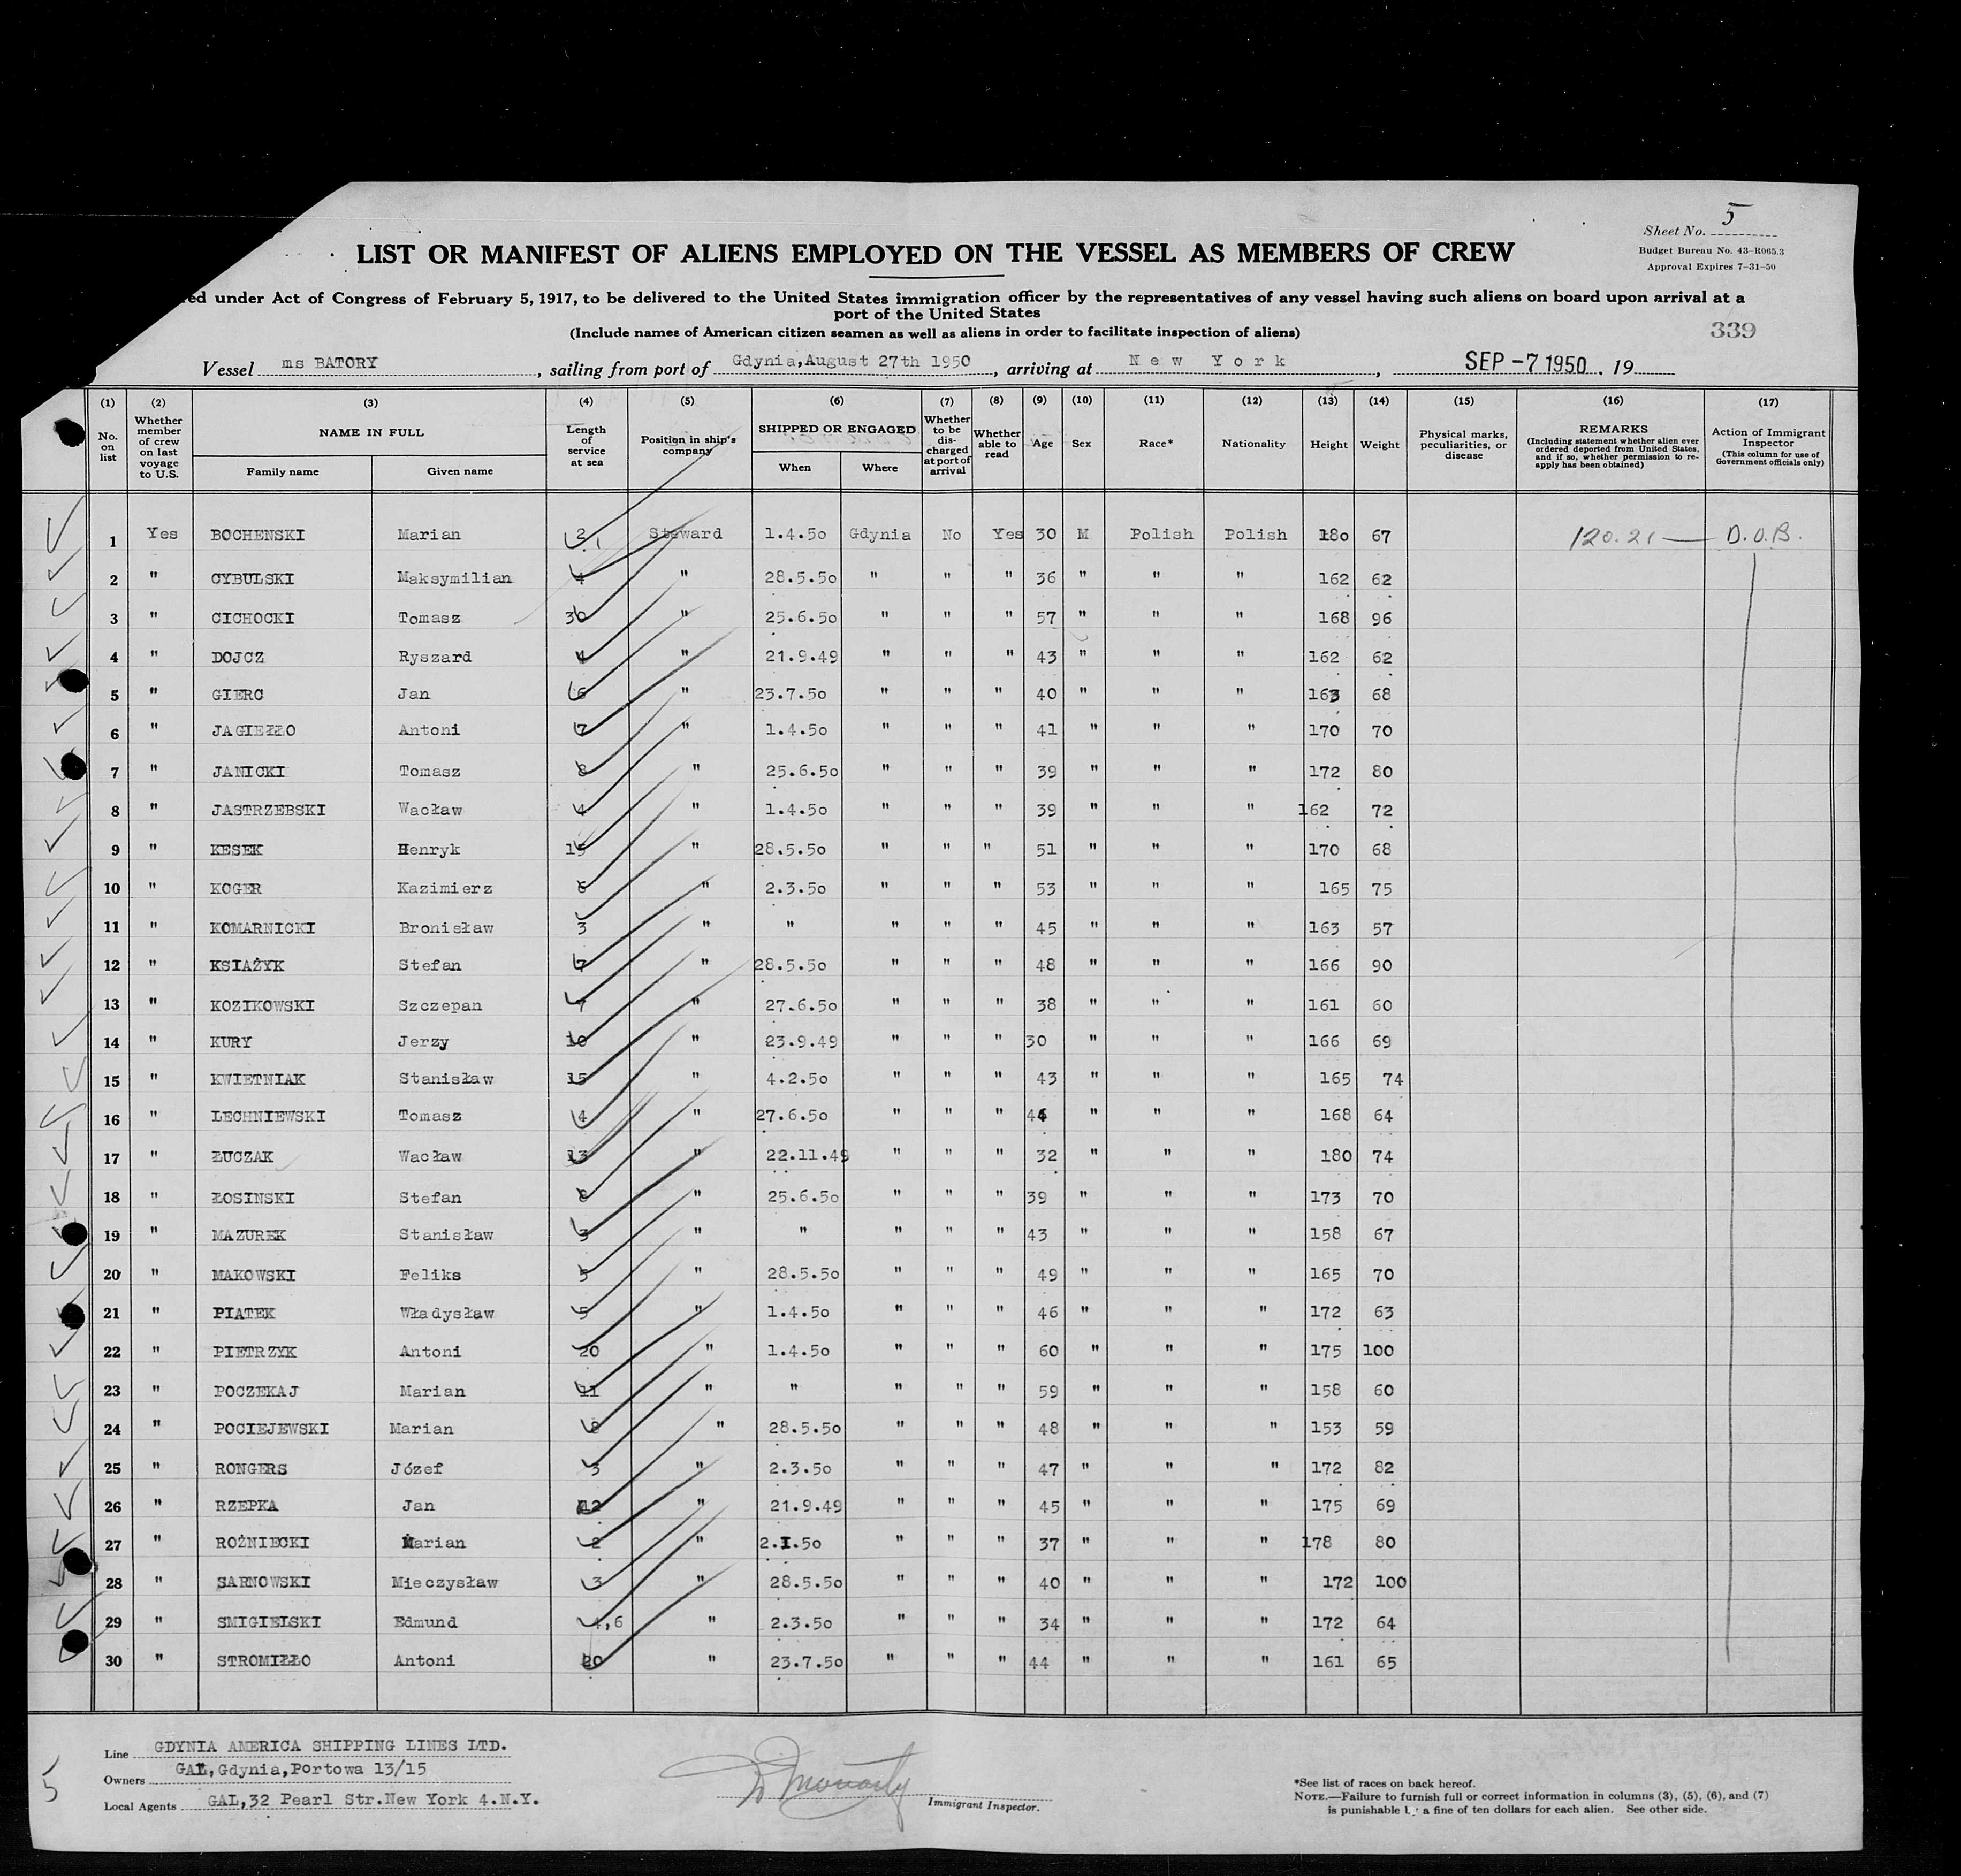 Sheet No. 5
Budget Bureau No. 43-R065.3
Approval Expires 7-31-50
LIST OR MANIFEST OF ALIENS EMPLOYED ON THE VESSEL AS MEMBERS OF CREW
ed under Act of Congress of February 5, 1917, to be delivered to the United States immigration officer by the representatives of any vessel having such aliens on board upon arrival at a
port of the United States
(Include names of American citizen seamen as well as aliens in order to facilitate inspection of aliens)
339
Vessel ms BATORY, sailing from port of Gdynia,August 27th 1950, arriving at New York, SEP -7 1950, 19
(1) No. on list (2) Whether member of crew on last voyage to U.S. (3) NAME IN FULL Family name Given name (4) Length of service at sea (5) Position in ship's company (6) SHIPPED OR ENGAGED When Where (7) Whether to be discharged at port of arrival (8) Whether able to read (9) Age (10) Sex (11) Race* (12) Nationality (13) Height (14) Weight (15) Physical marks, peculiarities, or disease (16) REMARKS (Including statement whether alien ever ordered deported from United States, and if so, whether permission to reapply has been obtained) (17) Action of Immigrant Inspector (This column for use of Government officials only)
1 Yes BOCHENSKI Marian 2 Steward 1.4.50 Gdynia No Yes 30 M Polish Polish 180 67 120.21 — D.O.B.
2 " CYBULSKI Maksymilian 4 " 28.5.50 " " " 36 " " " 162 62
3 " CICHOCKI Tomasz 30 " 25.6.50 " " " 57 " " " 168 96
4 " DOJCZ Ryszard 4 " 21.9.49 " " " 43 " " " 162 62
5 " GIERC Jan 6 " 23.7.50 " " " 40 " " " 163 68
6 " JAGIEŁŁO Antoni 7 " 1.4.50 " " " 41 " " " 170 70
7 " JANICKI Tomasz 8 " 25.6.50 " " " 39 " " " 172 80
8 " JASTRZEBSKI Wacław 4 " 1.4.50 " " " 39 " " " 162 72
9 " KESEK Henryk 15 " 28.5.50 " " " 51 " " " 170 68
10 " KOGER Kazimierz 6 " 2.3.50 " " " 53 " " " 165 75
11 " KOMARNICKI Bronisław 3 " " " " " 45 " " " 163 57
12 " KSIAŻYK Stefan 7 " 28.5.50 " " " 48 " " " 166 90
13 " KOZIKOWSKI Szczepan 7 " 27.6.50 " " " 38 " " " 161 60
14 " KURY Jerzy 10 " 23.9.49 " " " 30 " " " 166 69
15 " KWIETNIAK Stanisław 15 " 4.2.50 " " " 43 " " " 165 74
16 " LECHNIEWSKI Tomasz 4 " 27.6.50 " " " 44 " " " 168 64
17 " ŁUCZAK Wacław 13 " 22.11.49 " " " 32 " " " 180 74
18 " ŁOSINSKI Stefan 8 " 25.6.50 " " " 39 " " " 173 70
19 " MAZUREK Stanisław 3 " " " " " 43 " " " 158 67
20 " MAKOWSKI Feliks 5 " 28.5.50 " " " 49 " " " 165 70
21 " PIATEK Władysław 5 " 1.4.50 " " " 46 " " " 172 63
22 " PIETRZYK Antoni 20 " 1.4.50 " " " 60 " " " 175 100
23 " POCZEKAJ Marian 11 " " " " " 59 " " " 158 60
24 " POCIEJEWSKI Marian 8 " 28.5.50 " " " 48 " " " 153 59
25 " RONGERS Józef 3 " 2.3.50 " " " 47 " " " 172 82
26 " RZEPKA Jan 12 " 21.9.49 " " " 45 " " " 175 69
27 " ROŻNIECKI Marian 2 " 2.1.50 " " " 37 " " " 178 80
28 " SARNOWSKI Mieczysław 3 " 28.5.50 " " " 40 " " " 172 100
29 " SMIGIELSKI Edmund 4,6 " 2.3.50 " " " 34 " " " 172 64
30 " STROMIŁŁO Antoni 20 " 23.7.50 " " " 44 " " " 161 65
5
Line GDYNIA AMERICA SHIPPING LINES LTD.
Owners GAL,Gdynia,Portowa 13/15
Local Agents GAL,32 Pearl Str.New York 4.N.Y.
Immigrant Inspector.
*See list of races on back hereof.
NOTE.—Failure to furnish full or correct information in columns (3), (5), (6), and (7)
is punishable by a fine of ten dollars for each alien. See other side.